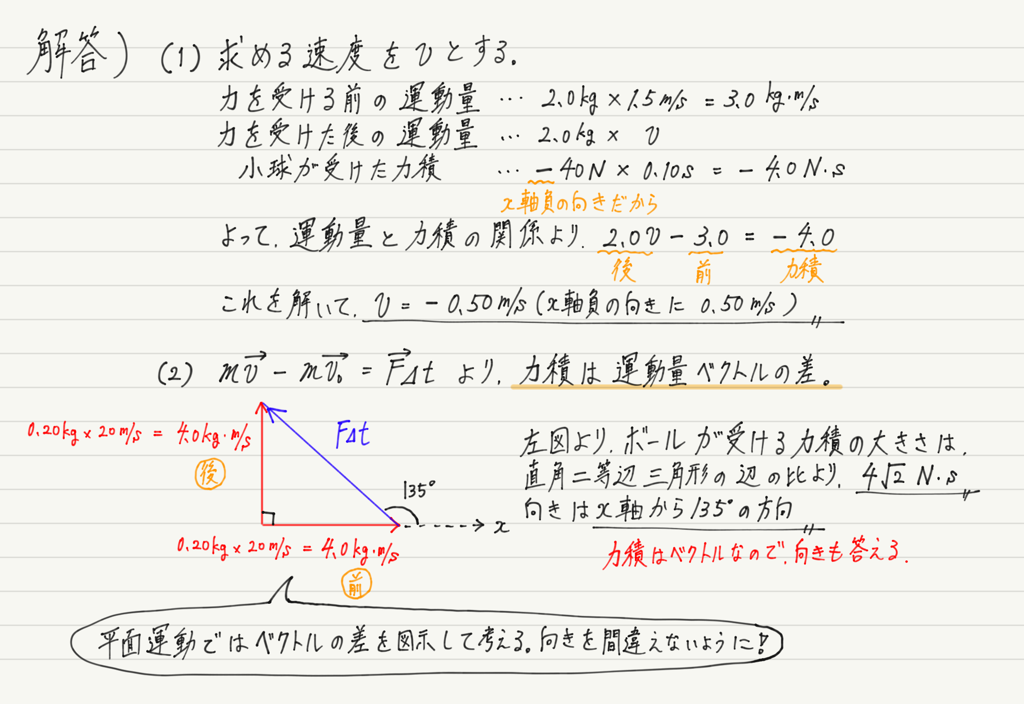 解答) (1) 求める速度をvとする.
力を受ける前の運動量 … 2.0kg×1.5m/s = 3.0kg·m/s
力を受けた後の運動量 … 2.0kg× v
小球が受けた力積 … -40N × 0.10s = -4.0N·s
x軸負の向きだから
よって, 運動量と力積の関係より, 2.0v - 3.0 = -4.0
後 前 力積
これを解いて, v = -0.50m/s (x軸負の向きに 0.50m/s)
(2) mv⃗ - mv⃗₀ = F⃗Δt より, 力積は運動量ベクトルの差。
0.20kg×20m/s = 4.0kg·m/s
後
FΔt
135°
x
0.20kg×20m/s = 4.0kg·m/s
前
左図より, ボールが受ける力積の大きさは,
直角二等辺三角形の辺の比より, 4√2 N·s
向きはx軸から135°の方向
力積はベクトルなので, 向きも答える.
平面運動ではベクトルの差を図示して考える。向きを間違えないように!